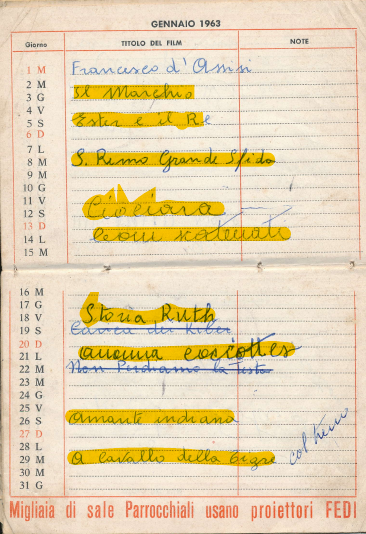 GENNAIO 1963
Giorno TITOLO DEL FILM NOTE
1 M Francesco d'Assisi
2 M Il Marchio
3 G
4 V
5 S Ester e il Re
6 D
7 L
8 M S. Remo Grande Sfida
9 M
10 G
11 V
12 S Ciociara
13 D
14 L Leoni scatenati
15 M
16 M
17 G
18 V Storia Ruth
19 S Carica dei Kiber
20 D
21 L anonima cocottes
22 M Non Perdiamo la Testa
23 M
24 G
25 V
26 S Amante indiana
27 D
28 L
29 M A Cavallo della Tigre
30 M
31 G
Migliaia di sale Parrocchiali usano proiettori FEDI